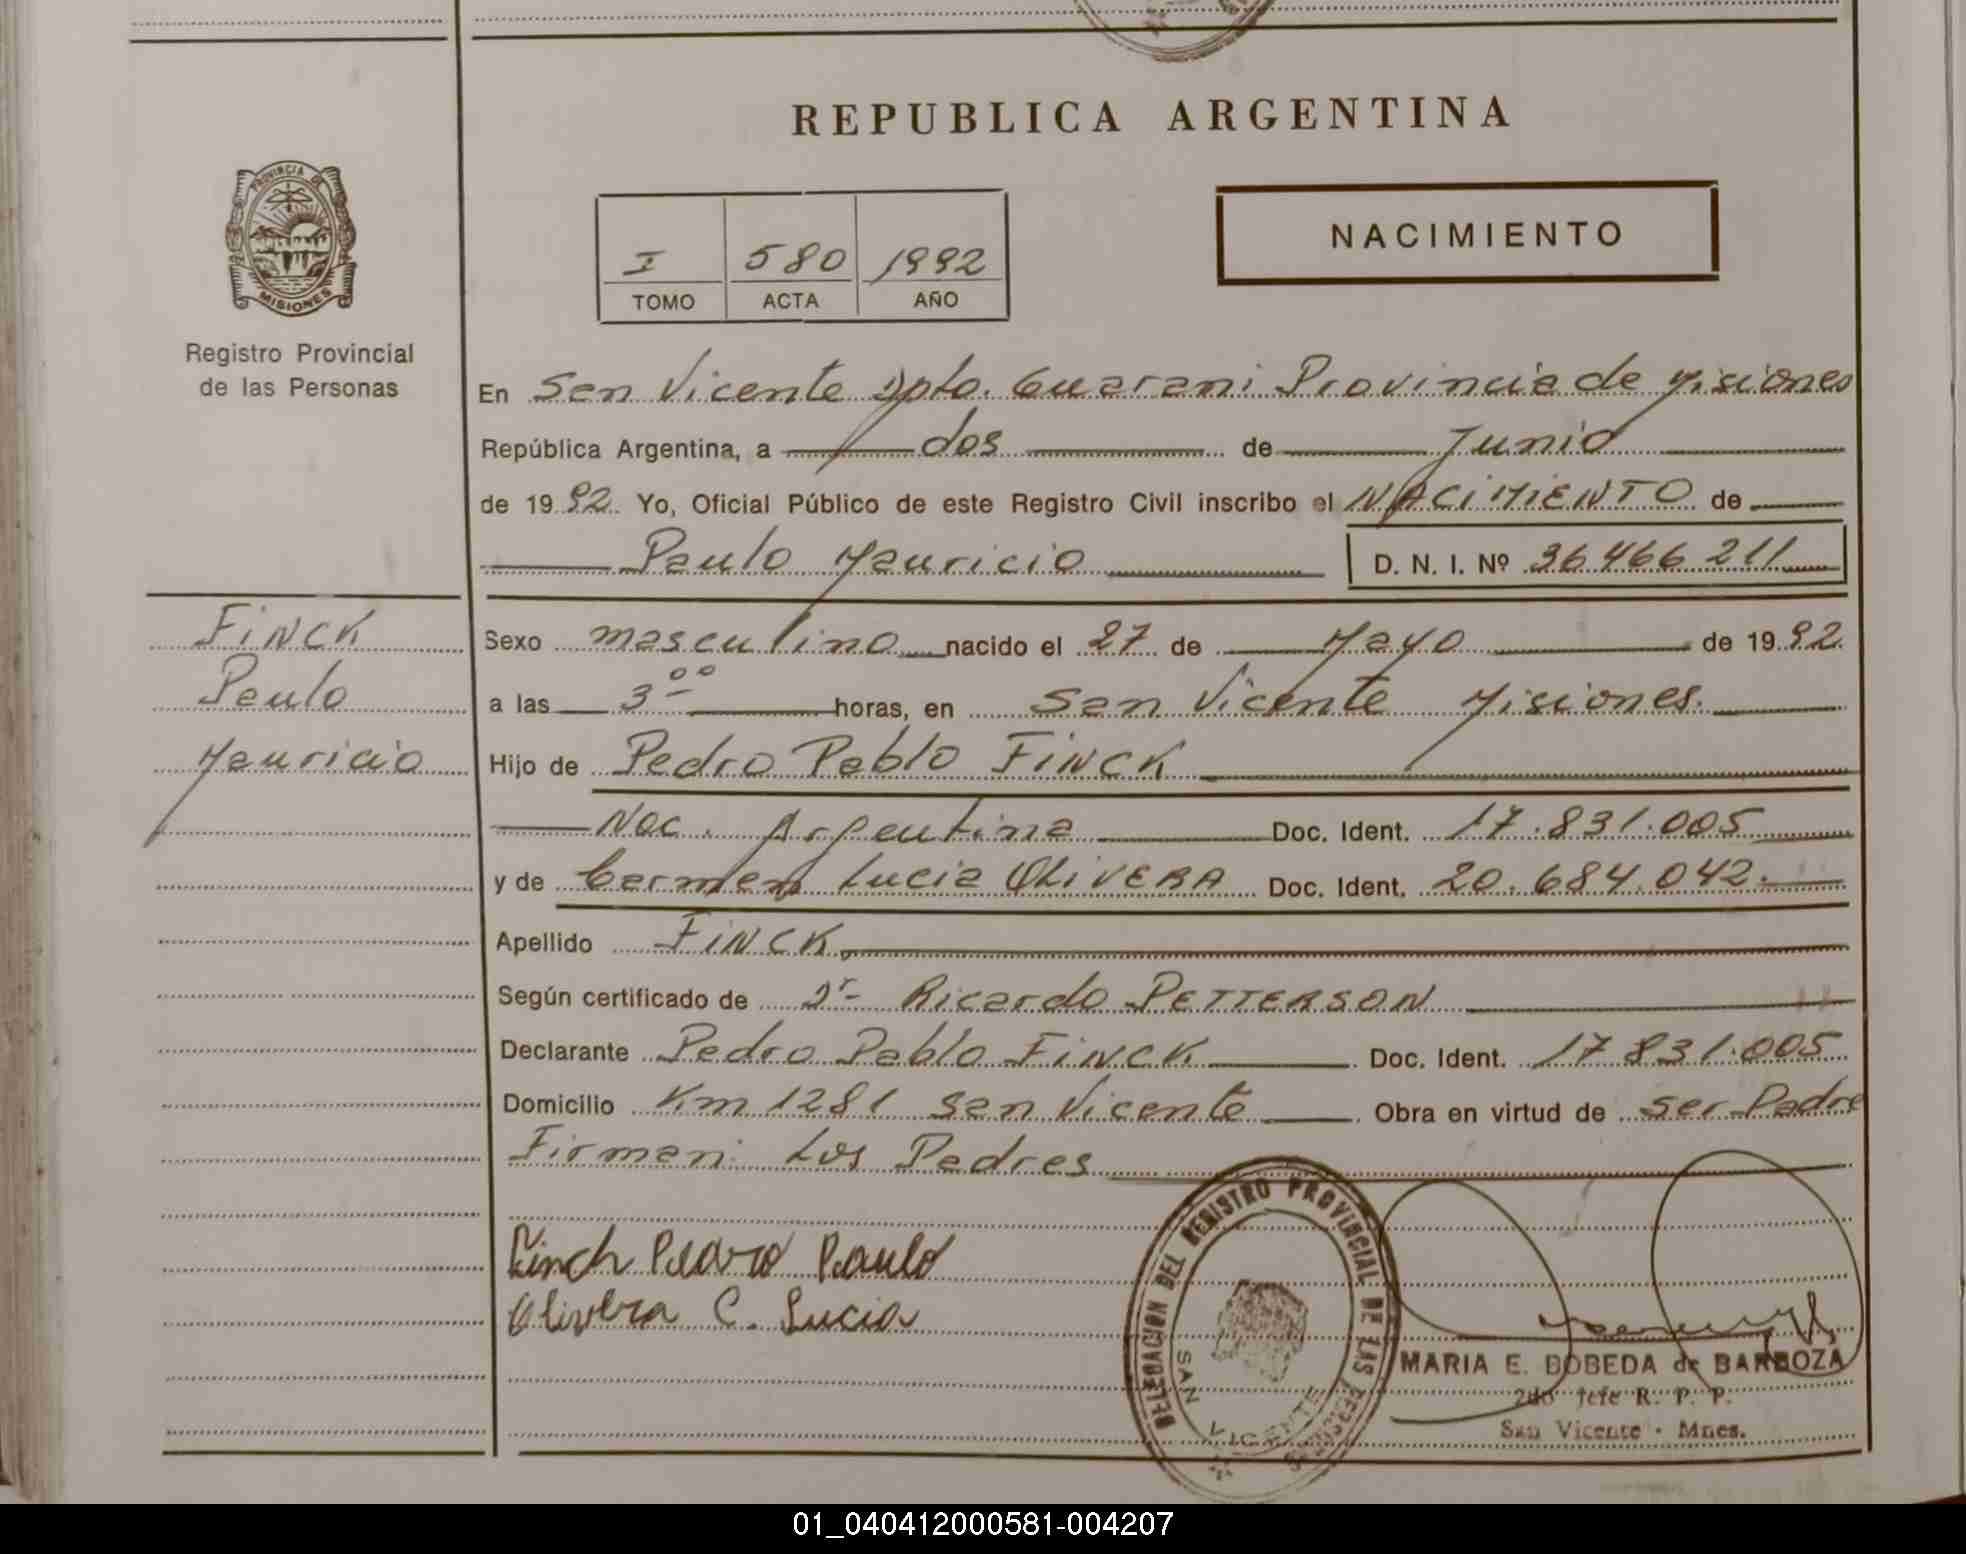 REPUBLICA ARGENTINA
PROVINCIA DE
MISIONES
Registro Provincial
de las Personas
I 580 1992
TOMO ACTA AÑO
NACIMIENTO
En San Vicente Dpto. Guarani Provincia de Misiones
República Argentina, a dos de Junio
de 1992. Yo, Oficial Público de este Registro Civil inscribo el NACIMIENTO de
Paulo Mauricio D. N. I. Nº 36466211
FINCK
Paulo
Mauricio
Sexo masculino nacido el 27 de Mayo de 1992.
a las 3⁰⁰ horas, en San Vicente Misiones.
Hijo de Pedro Pablo FINCK
Nac. Argentina Doc. Ident. 17.831.005
y de Carmen Lucia OLIVERA Doc. Ident. 20.684.042.
Apellido FINCK
Según certificado de Dr Ricardo PETTERSON
Declarante Pedro Pablo FINCK Doc. Ident. 17831.005
Domicilio Km 1281 San Vicente Obra en virtud de ser Padre
Firman: Los Padres
Finch Pedro Paulo
Olivera C. Lucia
DELEGACION DEL REGISTRO PROVINCIAL DE LAS PERSONAS
SAN VICENTE
MARIA E. BOBEDA de BARBOZA
2do Jefe R. P. P.
San Vicente - Mnes.
01_040412000581-004207